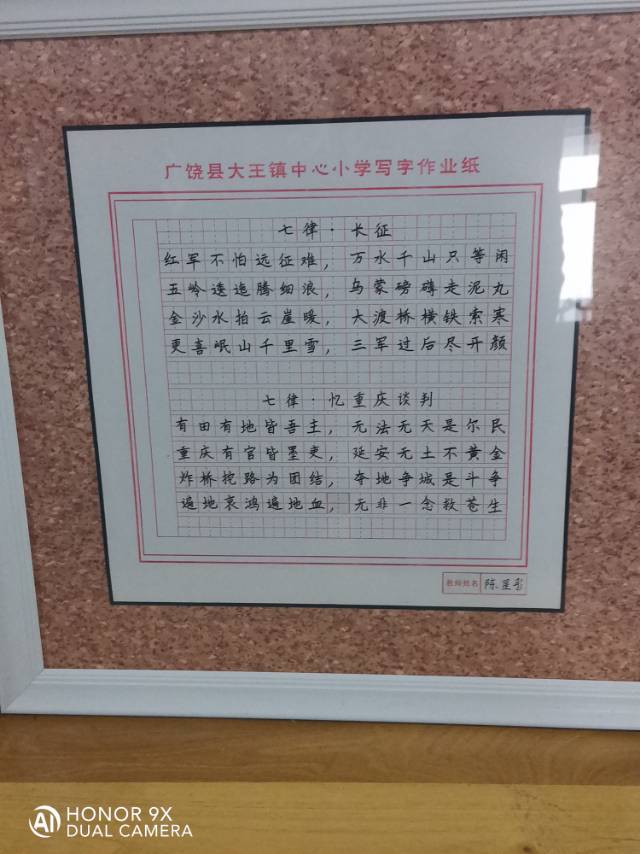 广饶县大王镇中心小学写字作业纸
七律·长征
红军不怕远征难，万水千山只等闲
五岭逶迤腾细浪，乌蒙磅礴走泥丸
金沙水拍云崖暖，大渡桥横铁索寒
更喜岷山千里雪，三军过后尽开颜
七律·忆重庆谈判
有田有地皆吾主，无法无天是尔民
重庆有官皆墨吏，延安无土不黄金
炸桥挖路为团结，夺地争城是斗争
遍地哀鸿遍地血，无非一念救苍生
教师姓名 陈
HONOR 9X
DUAL CAMERA
AI